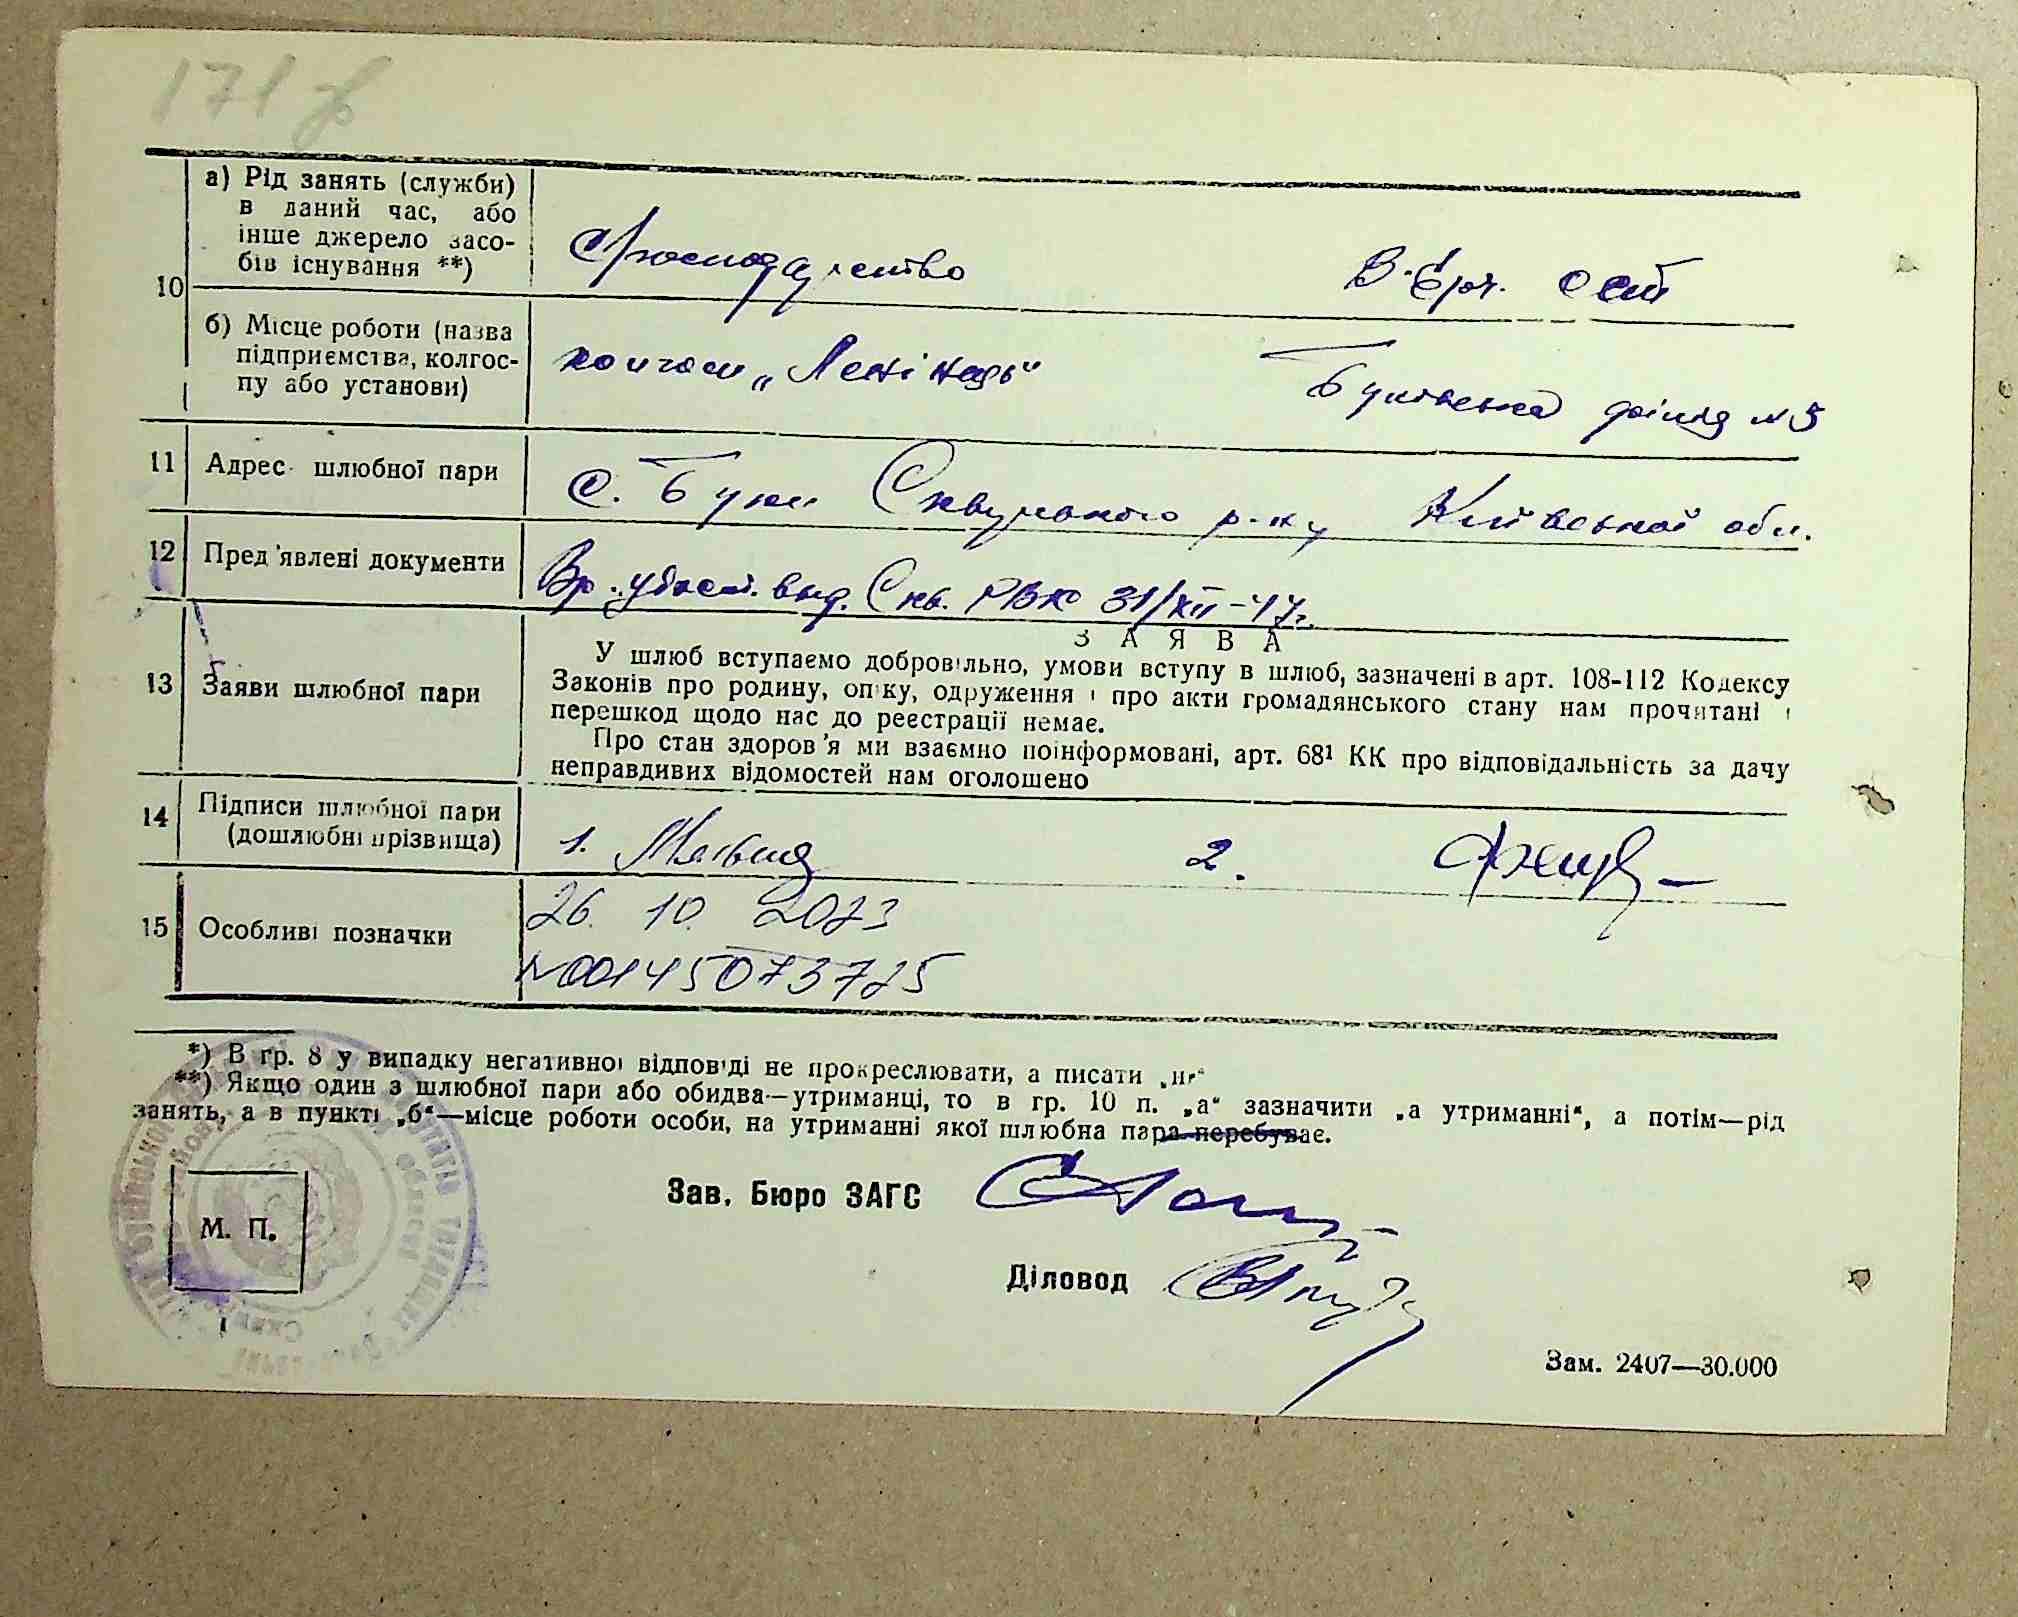 171
а) Рід занять (служби)
в даний час, або
інше джерело засо-
бів існування **)
С/господарство
В.
10
б) Місце роботи (назва
підприємства, колгос-
пу або установи)
колгосп „Ленінець"
Буківська філія № 5
11 Адрес шлюбної пари
с. Буки Сквирського р-ну Київської обл.
12 Пред'явлені документи
Вр. удост. выд. Скв. РВК 31/XII-47г.
13 Заяви шлюбної пари
ЗАЯВА
У шлюб вступаємо добровільно, умови вступу в шлюб, зазначені в арт. 108-112 Кодексу
Законів про родину, опіку, одруження і про акти громадянського стану нам прочитані і
перешкод щодо нас до реєстрації немає.
Про стан здоров'я ми взаємно поінформовані, арт. 68¹ КК про відповідальність за дачу
неправдивих відомостей нам оголошено
14 Підписи шлюбної пари
(дошлюбні прізвища)
1.
2.
15 Особливі позначки
26. 10. 2023
№00145073725
*) В гр. 8 у випадку негативної відповіді не прокреслювати, а писати „ні"
**) Якщо один з шлюбної пари або обидва—утриманці, то в гр. 10 п. „а" зазначити „а утриманні", а потім—рід
занять, а в пункті „б"—місце роботи особи, на утриманні якої шлюбна пара перебуває.
М. П.
Зав. Бюро ЗАГС
Діловод
Зам. 2407—30.000